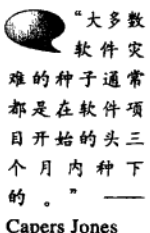 “大多数
软件灾
难的种子通常
都是在软件项
目开始的头三
个月内种下
的。” ——
Capers Jones